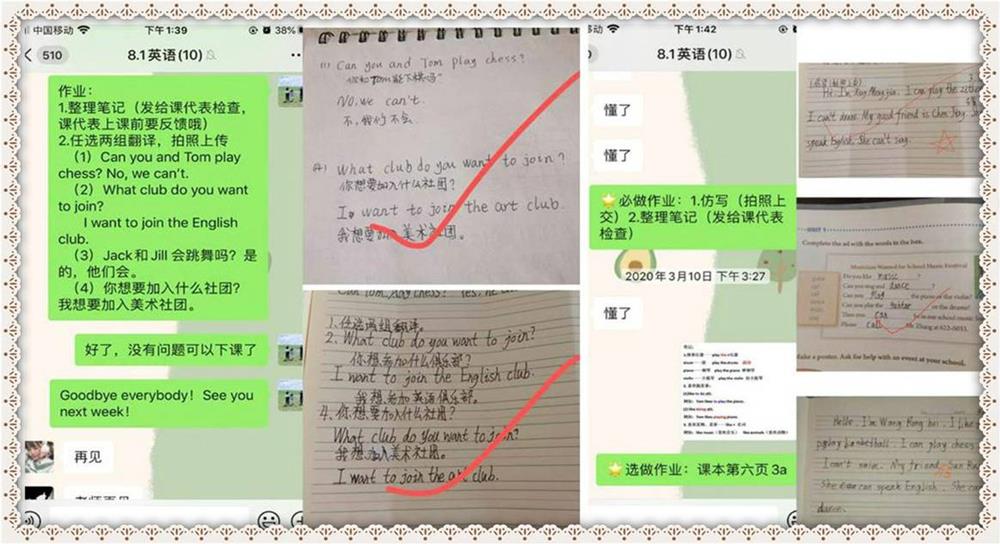 中国移动
下午1:39
38%
510
8.1英语(10)
作业：
1.整理笔记（发给课代表检查，
课代表上课前要反馈哦）
2.任选两组翻译，拍照上传
（1）Can you and Tom play
chess? No, we can't.
（2）What club do you want
to join?
I want to join the English
club.
（3）Jack和Jill 会跳舞吗？是
的，他们会。
（4）你想要加入什么社团？
我想要加入美术社团。
好了，没有问题可以下课了
Goodbye everybody！See you
next week！
再见
(1) Can you and Tom play chess?
NO, we can't.
不，我们不会.
(4) What club do you want to join?
你想要加入什么社团？
I want to join the art club.
我想要加入美术社团。
1.任选两组翻译。
2. What club do you want to join?
你想参加什么俱乐部？
I want to join the English club.
我想参加英语俱乐部。
4.你想要加入什么社团？
What club do you want to join?
我想加入美术社团。
I want to join the art club.
移动
下午1:42
510
8.1英语(10)
懂了
懂了
必做作业：1.仿写（拍照上
交）2.整理笔记（发给课代表
检查）
2020年3月10日 下午3:27
懂了
选做作业：课本第六页3a
I can play the
I can't dance. My good friend is
speak English. She can't say.
Complete the ad with the words in the box.
Musicians Wanted for School Music Festival
Do you like music?
Can you sing and dance?
Can you play the piano or the violin?
Can you play the guitar or the drums?
Then you can be in our school music
Please call Zhang at 622-6033.
Make a poster. Ask for help with an event at your school.
Hello. I'm Wang
I can play chess.
I can't swim. My friend
She can speak English. She
dance.